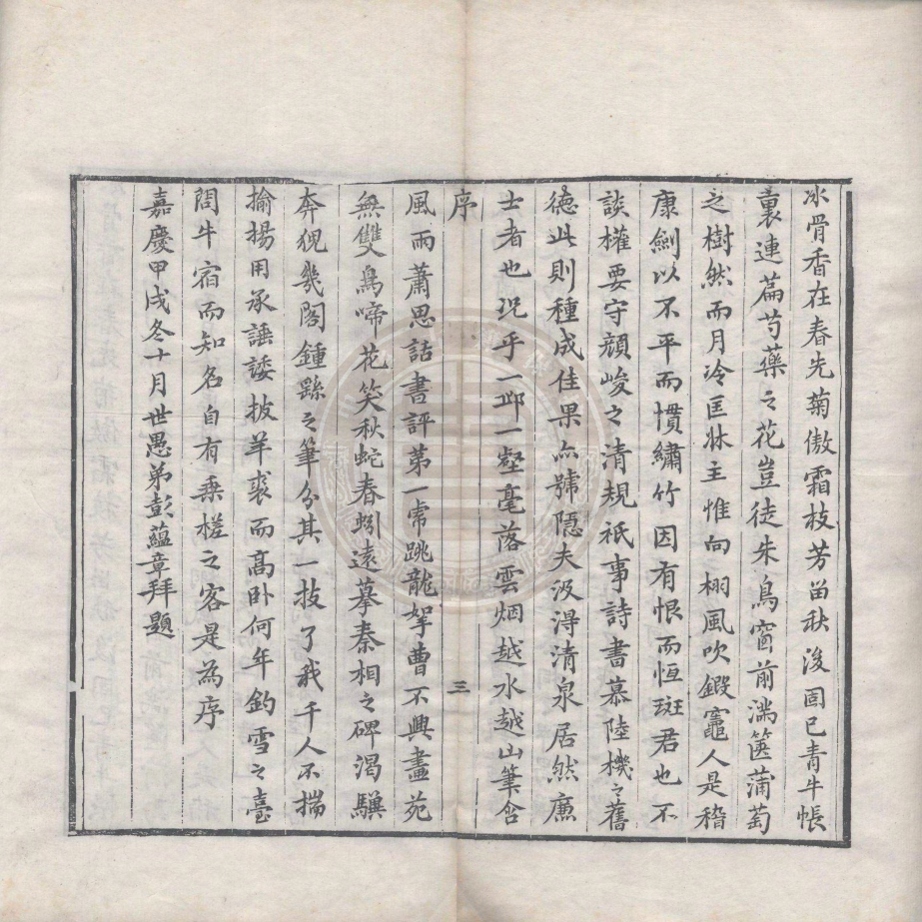 冰骨香在春先菊傲霜枝芳留秋後固已青牛帳
裏連篇芍藥之花豈徒朱鳥窗前滿篋蒲萄
之樹然而月冷匡牀主惟向栩風吹鍛竈人是稽
康劍以不平而慣繡竹因有恨而恆斑君也不
談權要守顏峻之清規祇事詩書慕陸機之舊
德此則種成佳果亦號隱夫汲得清泉居然廉
士者也況乎一邱一壑毫落雲烟越水越山筆含
序
三
風雨蕭思話書評第一常跳龍拏曹不興畫苑
無雙鳥啼花笑秋蛇春蚓遠摹秦相之碑渴驥
奔猊幾閣鍾繇之筆分其一技了我千人不揣
揄揚用承諈諉披羊裘而高卧何年釣雪之臺
問牛宿而知名自有乘槎之客是為序
嘉慶甲戌冬十月世愚弟彭蘊章拜題